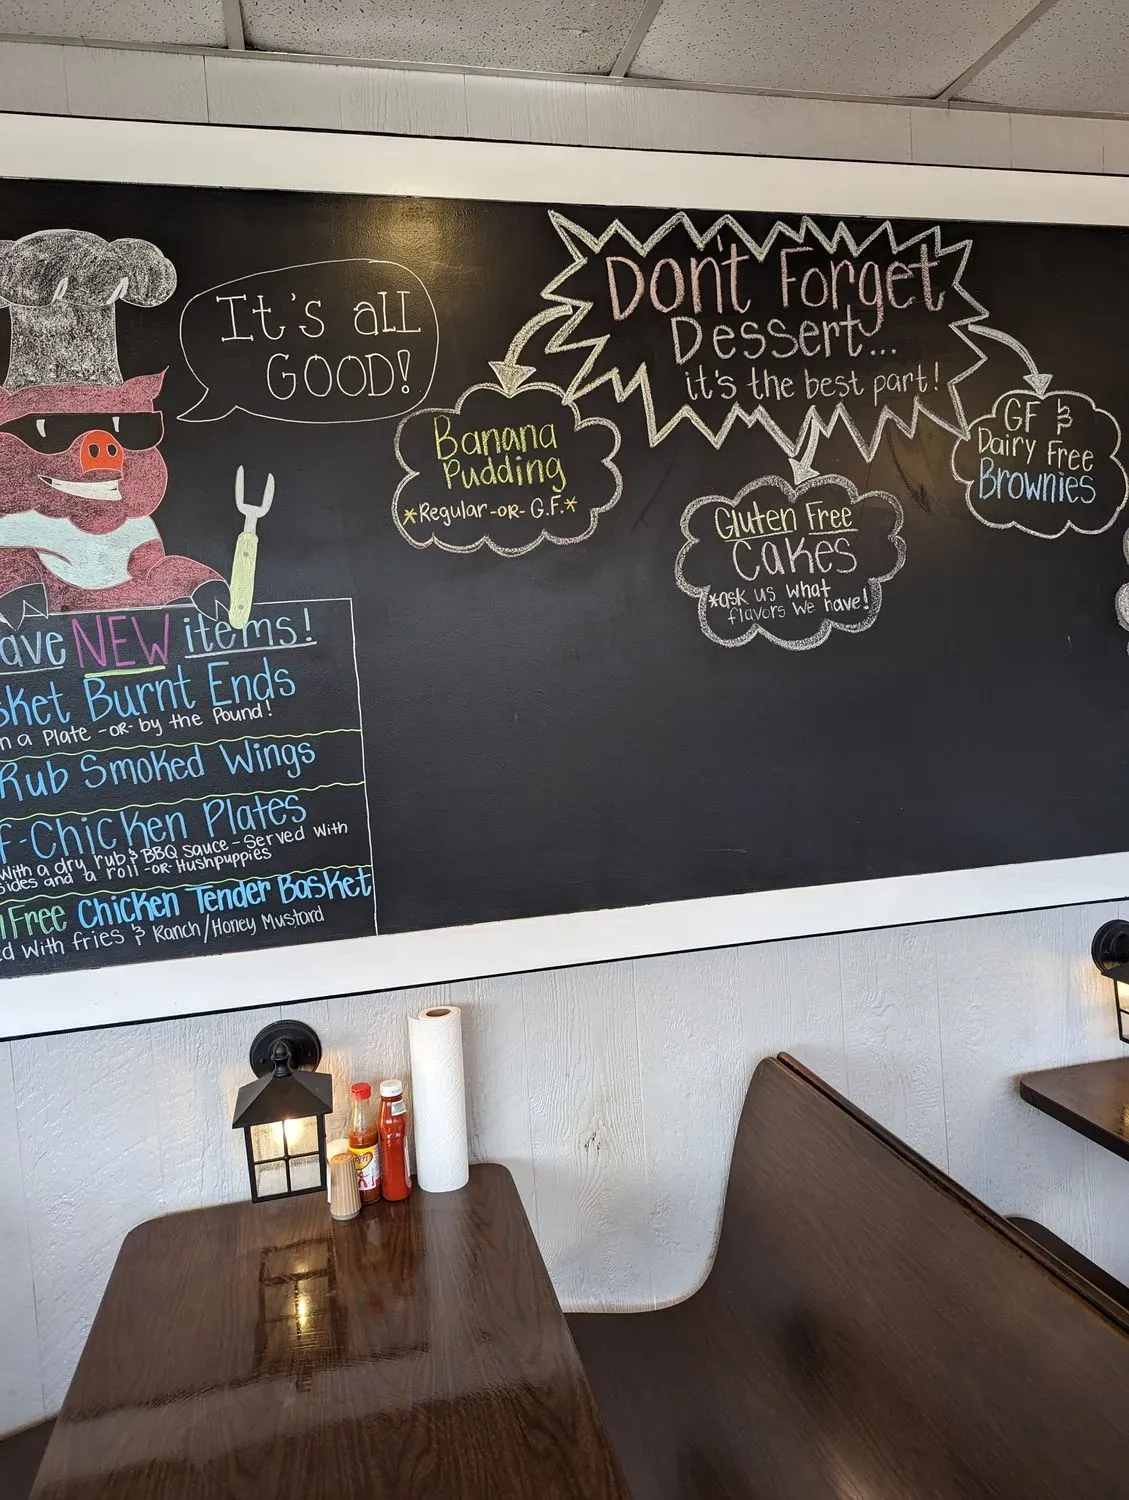 It's all
GOOD!
Don't Forget
Dessert...
it's the best part!
Banana
Pudding
*Regular -OR- G.F.*
Gluten Free
Cakes
*ask us what
flavors we have!
GF &
Dairy Free
Brownies
ave NEW items!
sket Burnt Ends
n a Plate -OR- by the Pound!
Rub Smoked Wings
f-Chicken Plates
with a dry rub & BBQ sauce - Served with
sides and a roll -OR- Hushpuppies
Free Chicken Tender Basket
ed with fries & Ranch/Honey Mustard